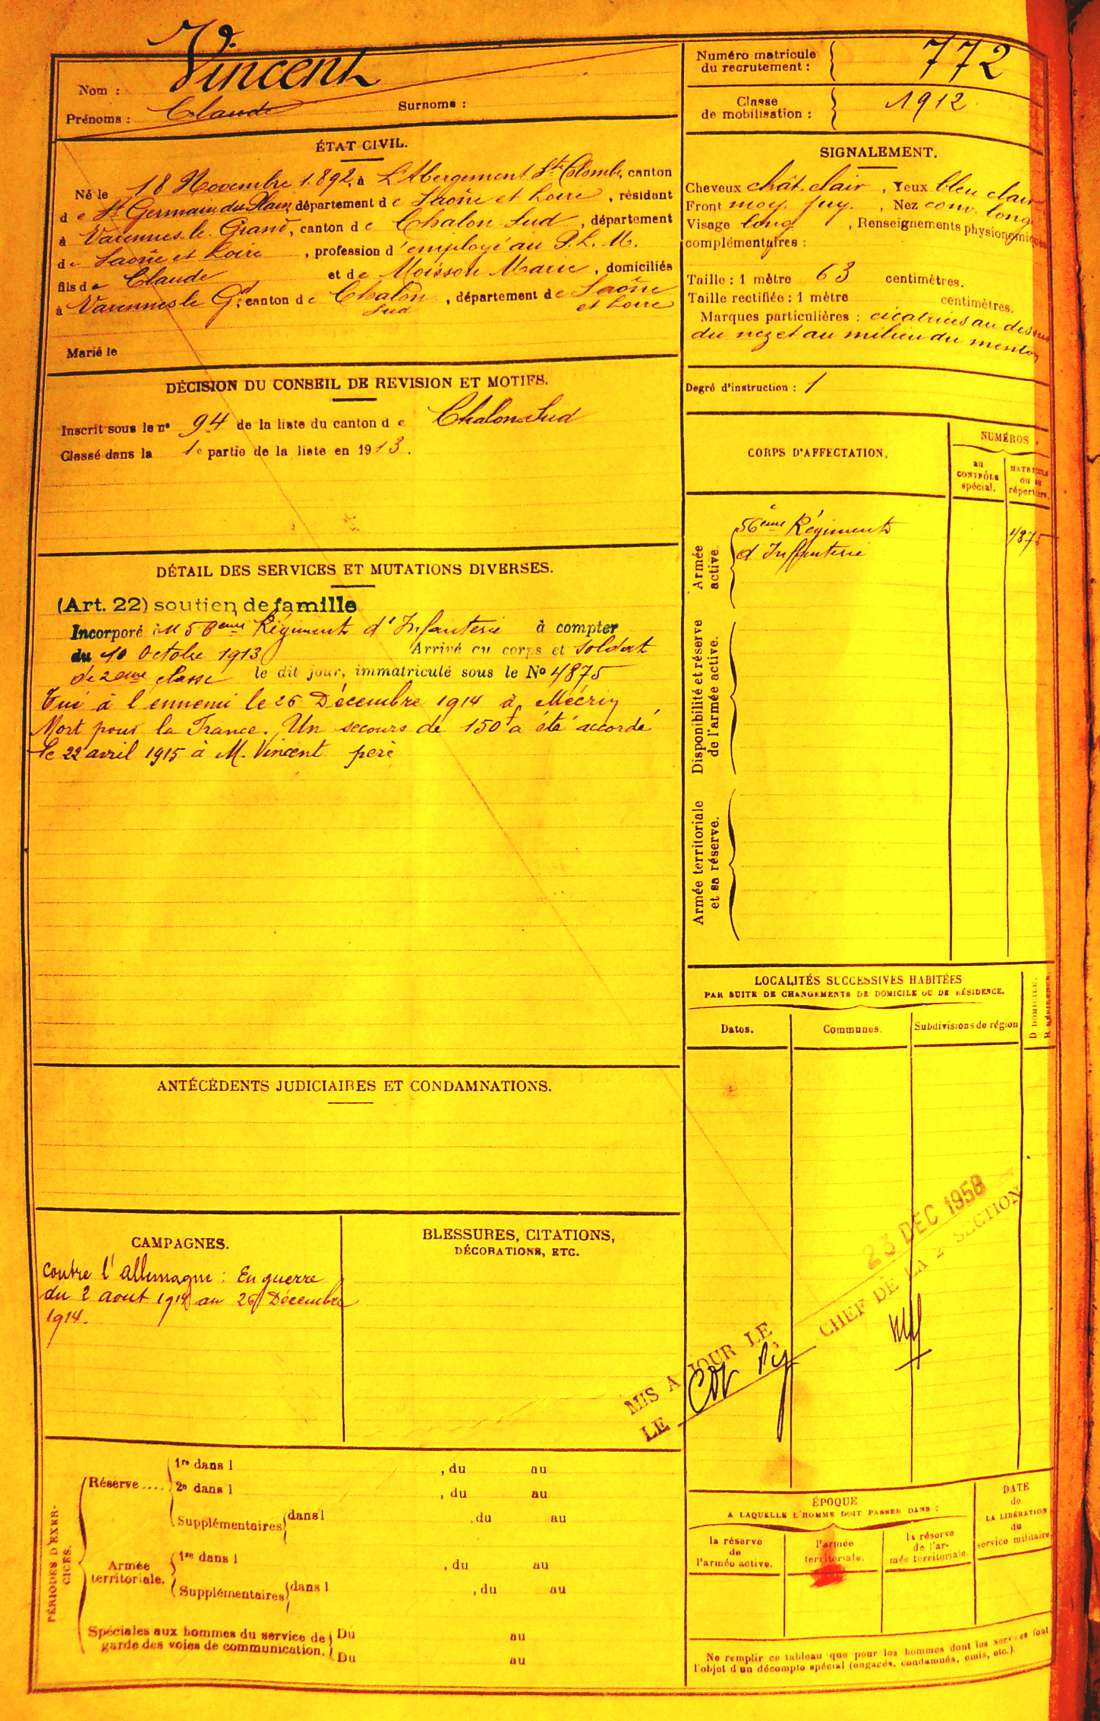 Nom : Vincent
Prénoms : Claude Surnoms :
Numéro matricule du recrutement : 772
Classe de mobilisation : 1912
ÉTAT CIVIL.
Né le 18 Novembre 1892, à L'Abergement Ste Colombe, canton
de St Germain du Plain, département de Saône et Loire, résidant
à Varennes le Grand, canton de Chalon Sud, département
de Saône et Loire, profession d'employé au P. L. M.
fils de Claude et de Moisson Marie, domiciliés
à Varennes le Gd, canton de Chalon Sud, département de Saône et Loire
Marié le
SIGNALEMENT.
Cheveux chât. clair, Yeux bleu clair
Front moy. fuy., Nez conv. long
Visage long, Renseignements physionomiques
complémentaires :
Taille : 1 mètre 63 centimètres.
Taille rectifiée : 1 mètre centimètres.
Marques particulières : cicatrices au dessus
du nez et au milieu du menton
Degré d'instruction : 1
DÉCISION DU CONSEIL DE REVISION ET MOTIFS.
Inscrit sous le n° 94 de la liste du canton de Chalon Sud
Classé dans la 1e partie de la liste en 1913.
CORPS D'AFFECTATION.
NUMÉROS
au CONTRÔLE spécial.
MATRICULE ou au répertoire.
Armée active.
56ème Régiment
d'Infanterie
4875
Disponibilité et réserve de l'armée active.
Armée territoriale et sa réserve.
DÉTAIL DES SERVICES ET MUTATIONS DIVERSES.
(Art. 22) soutien de famille
Incorporé au 56ème Régiment d'Infanterie à compter
du 10 Octobre 1913 Arrivé au corps et soldat
de 2ème classe le dit jour, immatriculé sous le No 4875
Tué à l'ennemi le 26 Décembre 1914 à Mécrin
Mort pour la France. Un secours de 150f a été accordé
le 22 avril 1915 à M. Vincent père
LOCALITÉS SUCCESSIVES HABITÉES
PAR SUITE DE CHANGEMENTS DE DOMICILE OU DE RÉSIDENCE.
Dates. Communes. Subdivisions de région
D DOMICILE.
R RÉSIDENCE.
ANTÉCÉDENTS JUDICIAIRES ET CONDAMNATIONS.
CAMPAGNES.
contre l'allemagne : En guerre
du 2 aout 1914 au 26 Décembre
1914.
BLESSURES, CITATIONS,
DÉCORATIONS, ETC.
MIS A JOUR LE 23 DEC 1958
LE CHEF DE LA 2e SECTION
PÉRIODES D'EXERCICES.
Réserve....
1re dans l , du au
2e dans l , du au
Supplémentaires dans l , du au
Armée territoriale.
1re dans l , du au
Supplémentaires dans l , du au
Spéciales aux hommes du service de
garde des voies de communication.
Du au
Du au
ÉPOQUE
A LAQUELLE L'HOMME DOIT PASSER DANS :
la réserve de l'armée active.
l'armée territoriale.
la réserve de l'armée territoriale.
DATE de LA LIBÉRATION du service militaire.
Ne remplir ce tableau que pour les hommes dont les services font
l'objet d'un décompte spécial (engagés, condamnés, omis, etc.).